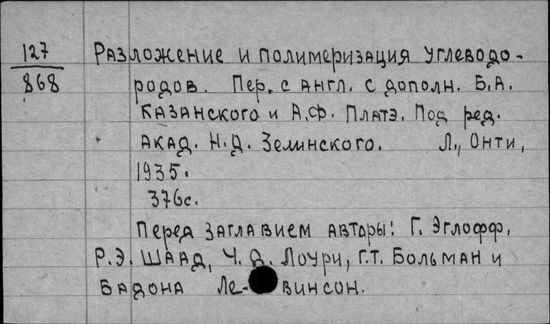 127 Разложение и полимеризация углеводо-
868 родов. Пер. с англ. с дополн. Б.А.
Казанского и А.Ф. Платэ. Под ред.
акад. Н.Д. Зелинского. Л., Онти,
1935.
376с.
Перед заглавием авторы: Г. Эглофф,
Р.Э. Шаад, Ч.Д. Лоури, Г.Т. Больман и
Бадона Ле-винсон.